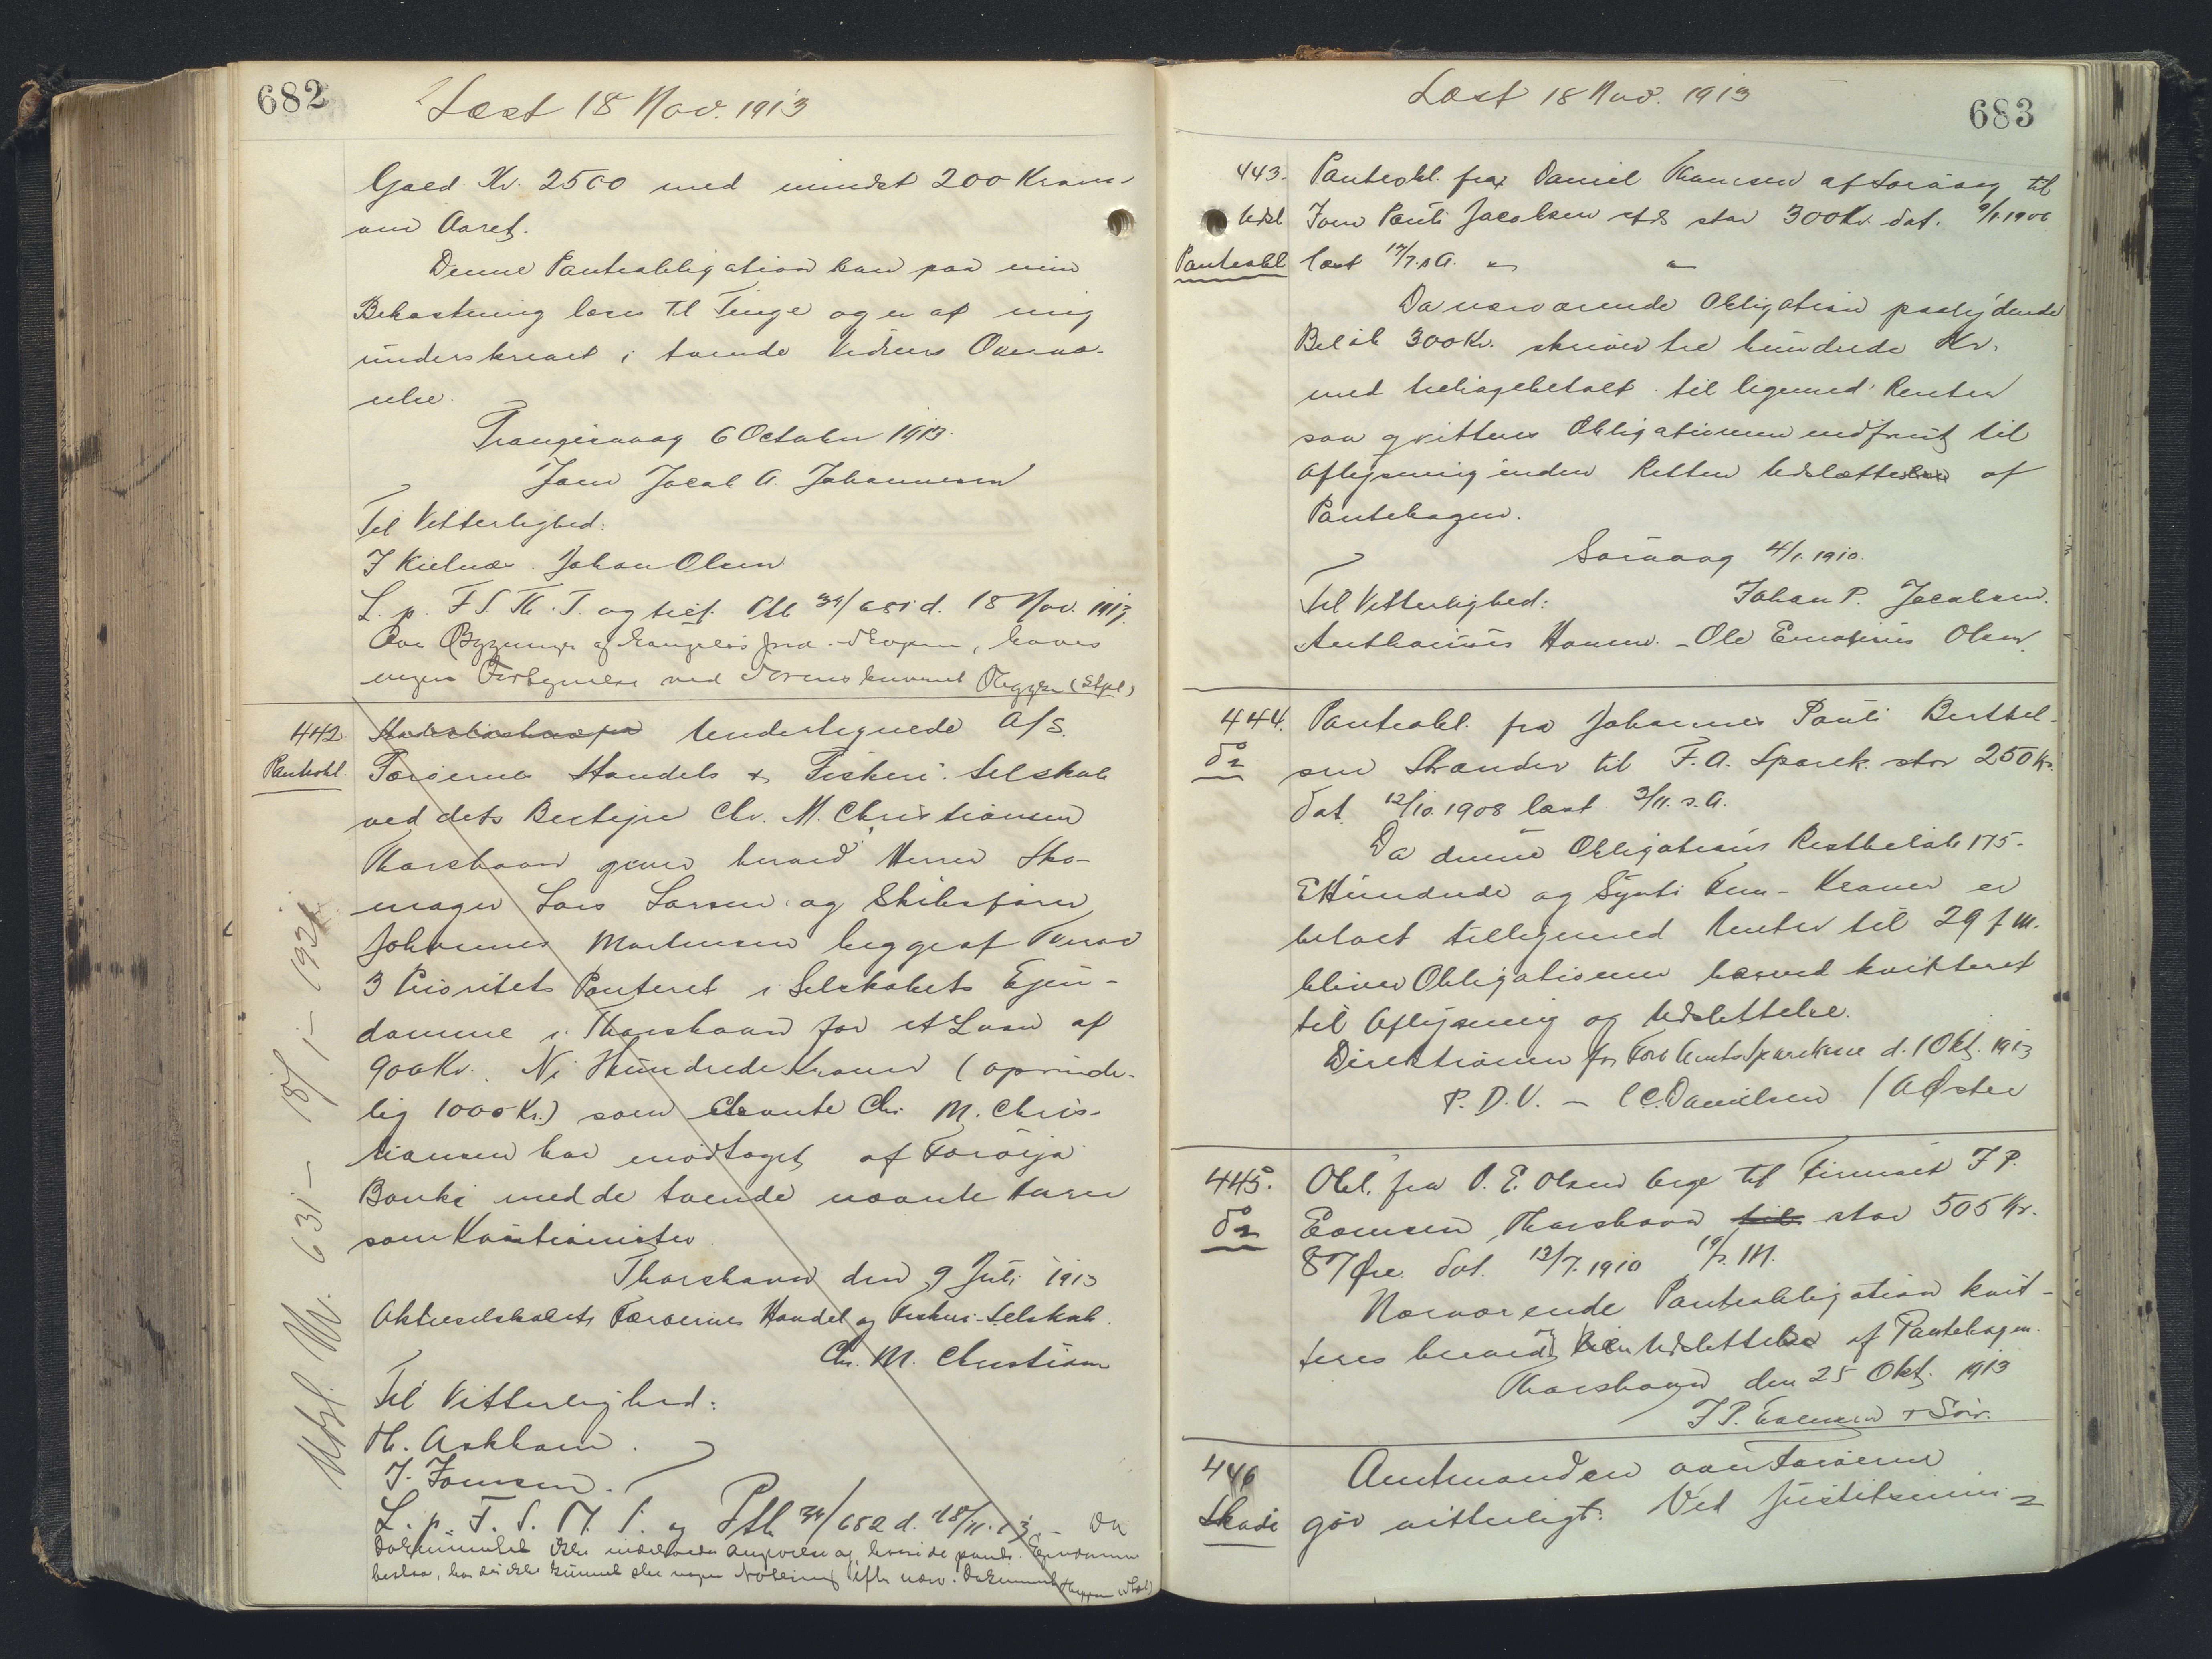 682
Læst 18 Nov. 1913
Gæld Kr. 2500 med mindst 200 Kroner
om Aaret.
Denne Panteobligation kan paa min
Bekostning læses til Tinge og er af mig
underskrevet i tvende Vidners Overvæ-
relse.
Trangisvaag 6 October 1913.
Jacob A. Johannesen
Til Vitterlighed:
J Kielnæs. Johan Olsen
L. p. F. S. Th. T. og tilf. Ptb 34/681 d. 18 Nov. 1913.
442. Undertegnede A/S.
Panteobl. Færöernes Handels & Fiskeri-Selskab
ved dets Bestyrer Chr. M. Christiansen
Thorshavn giver herved Herrer Sko-
mager Lars Larsen og Skibsförer
Johannes Mortensen begge af
3 Prioritets Panteret i Selskabets Ejen-
domme i Thorshavn for et Laan af
900 Kr. Ni Hundrede Kroner (oprinde-
lig 1000 Kr.) som nævnte Chr. M. Chris-
tiansen har modtaget af Føroya
Banki med de tvende nævnte Herrer
som Kautionister.
Thorshavn den 9 Juli 1913
Aktieselskabet Færøernes Handel og Fiskeri-Selskab.
Chr. M. Christiansen
Til Vitterlighed:
H. Askham.
J. Joensen.
L. p. F. S. Th. T. og Ptb 34/682 d. 18/11.13. - Da
Dokumentet ikke indeholder Angivelse af, hvori de pants. Ejendomme
bestaa, har der ikke kunnet ske nogen Notering efter nærv. Dokument
683
Læst 18 Nov. 1913
443. Panteobl. fra Daniel Thomsen af Sørvaag til
Udsl Joen Pauli Jacobsen stds stor 300 Kr. dat. 9/1.1906
Panteobl læst 17/7. s A. " "
Da nærværende Obligation paalydende
Belöb 300 Kr. skriver tre hundrede Kr.
med tilbagebetalt til ligemed Renter
saa qvitteres Obligationen til
Aflysning inden Retten Udslettelse af
Pantebogen.
Sørvaag 4/1. 1910.
Til Vitterlighed: Johan P. Jacobsen.
Hansen. - Ole Olsen.
444. Panteobl. fra Johannes Pauli Berthel-
do sen Strender til F. A. Sparek. stor 250 Kr.
dat. 12/10.1908 læst 3/11. s. A.
Da denne Obligations Restbelöb 175-
EtHundrede og Sytti Fem - Kroner er
betalt tilligemed Renter til 29 f M.
bliver Obligationen herved kvitteret
til Aflysning og Udslettelse.
Direktionen for Færö Amts Sparekasse d. 1 Okt. 1913
P. D. V. - C C. Danielsen / A Øster
445. Obl. fra O. E. Olsen Arge til Firmaet J P.
do Eomsen, Thorshavn til stor 505 Kr.
87 Øre. dat. 13/7. 1910 19/7. 1M.
Nærværende Panteobligation kvit-
teres herved til Udslettelse af Pantebogen.
Thorshavn den 25 Okt. 1913
J P. + Sön.
446 Amtmanden over Færöerne
Skøde gör vitterligt: Ved Justitsmini-